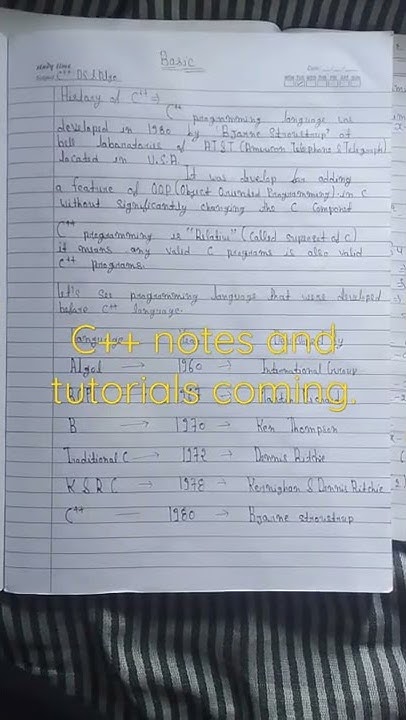 Basic
Study Time
Subject C++ DS & Algo
Date
History of C++ ⇒
C++ programming language was
developed in 1980 by "Bjarne Stroustrup" at
bell laboratories of AT&T (American Telephone & Telegraph)
located in U.S.A
It was develop for adding
a feature of OOP (Object Oriented Programming) in C
without significantly changing the C Component
C++ programming is "Relative" (called superset of C)
it means any valid C programs is also valid
C++ programs.
Let's see programming language that were developed
before C++ language.
C++ notes and
tutorials coming.
Algol → 1960 → International Group
B → 1970 → Ken Thompson
Traditional C → 1972 → Dennis Ritchie
K & R C → 1978 → Kernighan & Dennis Ritchie
C++ — 1980 → Bjarne stroustrup